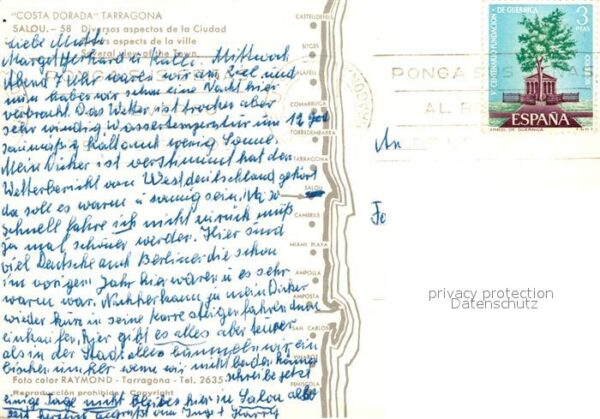 "COSTA DORADA" TARRAGONA
SALOU. - 58 Diversos aspectos de la Ciudad
Divers aspects de la ville
Several view of the Town
Liebe Mutti
Margot Gerhard u Kalli. Mittwoch
Abend 7 Uhr waren wir am Ziel und
nun haben wir schon eine Nacht hier
verbracht. Das Wetter ist trocken aber
sehr windig Wassertemperatur um 12 Grad
saumäßig kalt und wenig Sonne.
Mein Dicker ist verstimmt hat den
Wetterbericht von Westdeutschland gehört
da soll es warm u sonnig sein. Na so
schnell fahre ich nicht zurück muß
ja mal schöner werden. Hier sind
viel Deutsche auch Berliner die schon
im vorigen Jahr hier waren u es sehr
warm war. Nachher kann ja mein Dicker
wieder kurz in seine Karre steigen fahren dann
einkaufen, hier gibt es alles aber teurer
als in der Stadt alles bummeln wir ein
bischen immer wenn wir nicht
schreibe jetzt
einige Tage nicht bleibe hier in Salou also
seit herzlich gegrüßt von Inge + Harry
CASTELLDEFELS
SITGES
COMARRUGA
TORREDEMBARRA
TARRAGONA
SALOU
CAMBRILS
MIAMI PLAYA
AMPOLLA
AMPOSTA
SAN CARLOS
VINAROZ
PEÑISCOLA
Foto color RAYMOND - Tarragona - Tel. 2635
Reproducción prohibida - Copyright
PONGA
AL
V CENTENARIO FUNDACION
DE GUERNICA
3
PTAS
CORREO
ESPAÑA
ARBOL DE GUERNICA
An
privacy protection
Datenschutz